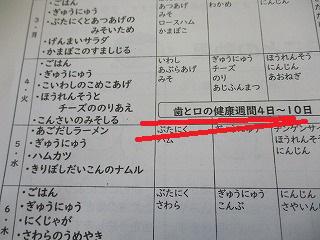 ・ごはん
・ぎゅうにゅう
・ぶたにくとあつあげの
みそいため
・げんまいサラダ
・かまぼこのすましじる
3・月
あつあげ
みそ
ロースハム
かまぼこ
わかめ
にんじん
・ごはん
・ぎゅうにゅう
・こいわしのこめこあげ
・ほうれんそうと
チーズののりあえ
・こんさいのみそしる
4・火
いわし
あぶらあげ
みそ
ぎゅうにゅう
チーズ
のり
あじにぼし
ほうれんそう
にんじん
あおねぎ
歯と口の健康週間4日～10日
・あごだしラーメン
・ぎゅうにゅう
・ハムカツ
・きりぼしだいこんのナムル
5・水
ぶたにく
ハム
ぎゅうにゅう
チンゲンサイ
にんじん
・ごはん
・ぎゅうにゅう
・にくじゃが
・さわらのうめやき
6・木
ぶたにく
さわら
ぎゅうにゅう
こんぶ
にんじん
さやいん